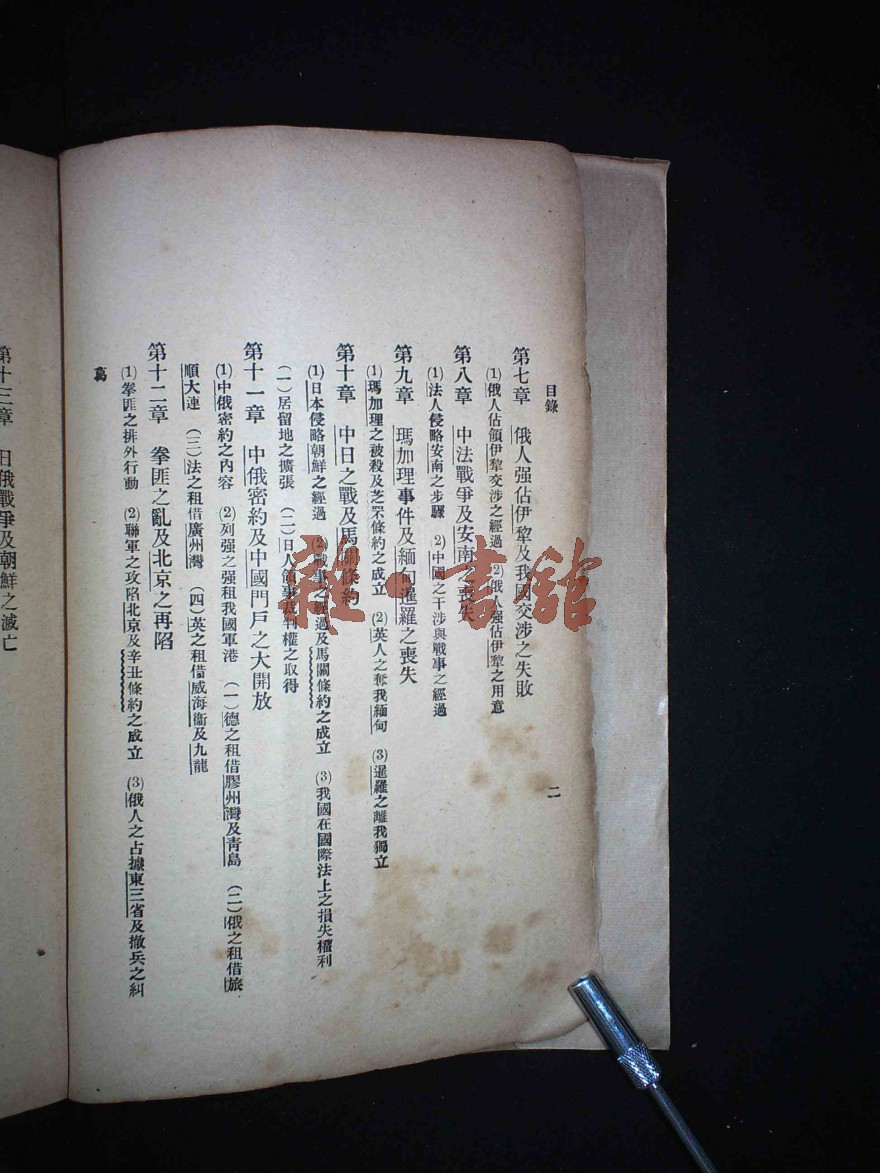 目錄
二
第七章　俄人强佔伊犂及我國交涉之失敗
(1)俄人佔領伊犂交涉之經過　(2)俄人强佔伊犂之用意
第八章　中法戰爭及安南之喪失
(1)法人侵略安南之步驟　(2)中國之干涉與戰事之經過
第九章　瑪加理事件及緬甸暹羅之喪失
(1)瑪加理之被殺及芝罘條約之成立　(2)英人之奪我緬甸　(3)暹羅之離我獨立
第十章　中日之戰及馬關條約
(1)日本侵略朝鮮之經過　(2)戰事之經過及馬關條約之成立　(3)我國在國際法上之損失權利
(一)居留地之擴張　(二)日人領事裁判權之取得
第十一章　中俄密約及中國門戶之大開放
(1)中俄密約之內容　(2)列强之强租我國軍港　(一)德之租借膠州灣及青島　(二)俄之租借旅
順大連　(三)法之租借廣州灣　(四)英之租借威海衞及九龍
第十二章　拳匪之亂及北京之再陷
(1)拳匪之排外行動　(2)聯軍之攻陷北京及辛丑條約之成立　(3)俄人之占據東三省及撤兵之糾
葛
第十三章　日俄戰爭及朝鮮之滅亡
雜·書館